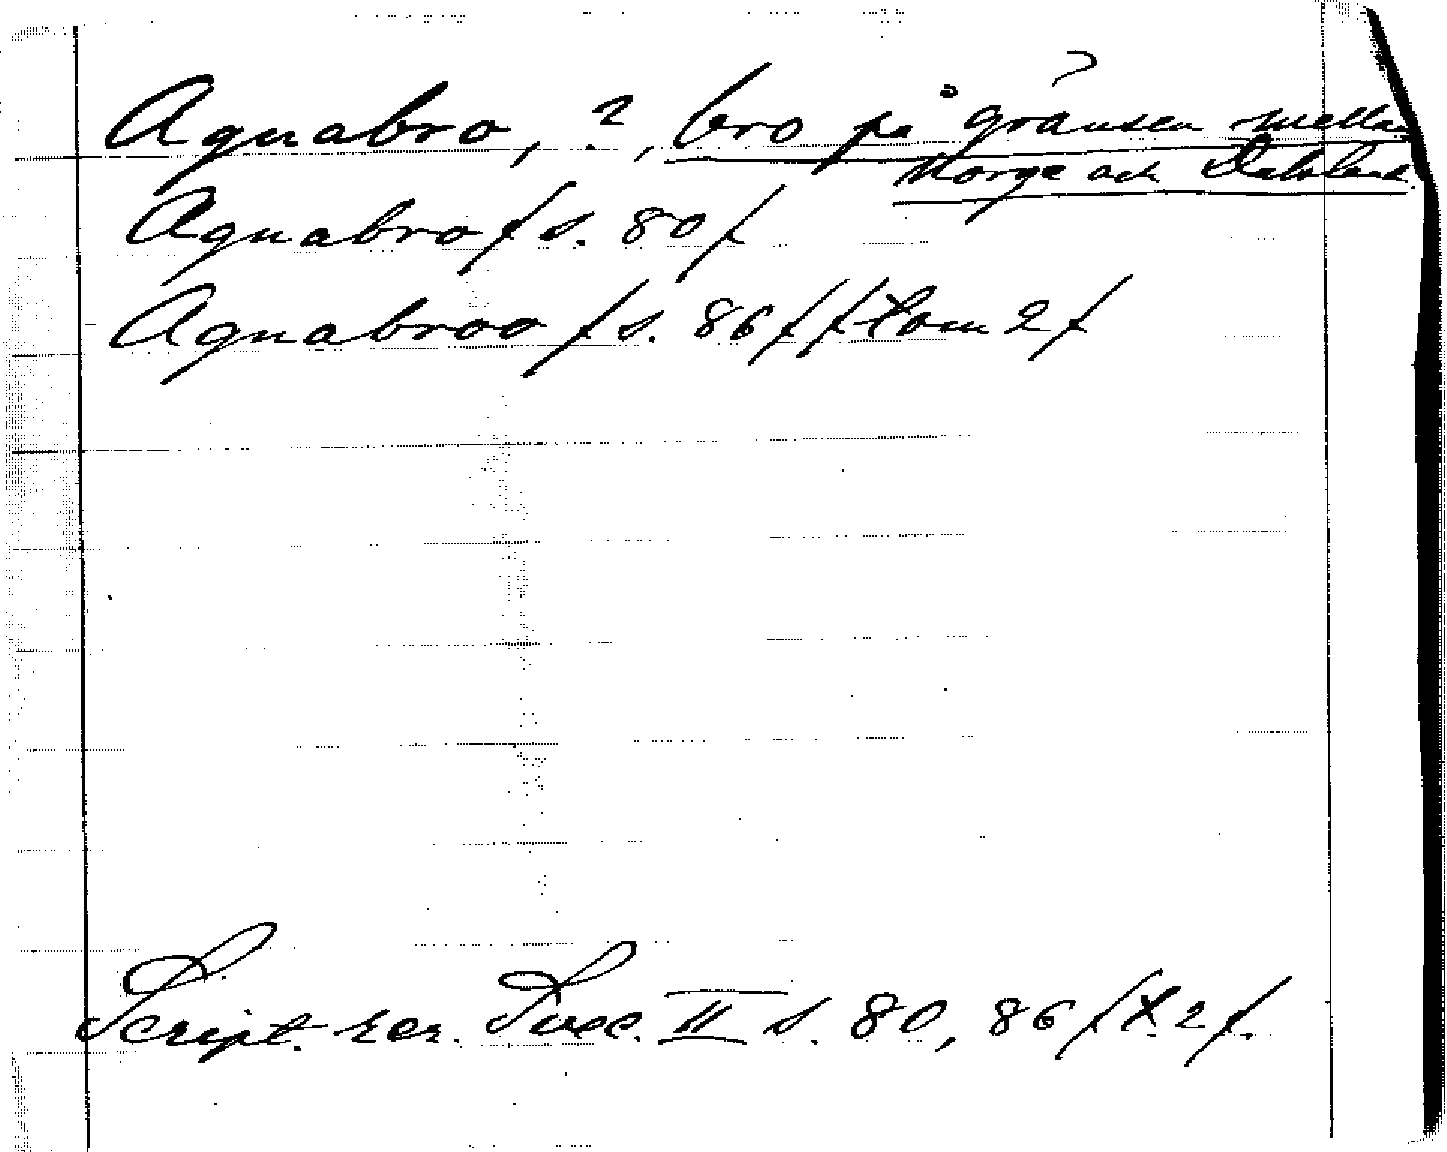 Agnabro, ?, bro på gränsen mellan
Norge och Dalsland.
Agnabro / s. 80 /
Agnabroo / s. 86 / / tom 2 /
Script. rer. Svec. II s. 80, 86 / t. 2 /.